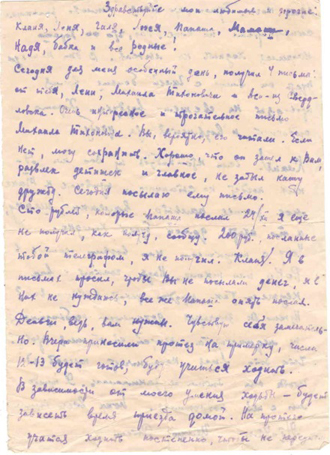 Здравствуйте мои любимые и дорогие:
Кланя, Лёня, Галя, Люся, Мамаша,
Надя, бабка и все родные!
Сегодня для меня особенный день, получил 4 письма:
от тебя, Лёни, Михаила и из
Очень прекрасное и письмо
Михаила Вы, вероятно, его читали. Если
нет могу сохранить. Хорошо, что он зашёл к Вам,
развлек детишек и главное, не забыл нашу
дружбу. Сегодня посылаю ему письмо.
Сто рублей, которые мамаша послала я ещё
не получил, как получу, сообщу. 200 руб, посланные
тобой телеграфом, я не получил. Кланя! Я в
письмах просил, чтобы Вы не посылали денег, я в
них не нуждаюсь, все же Мамаша опять послала.
Деньги, ведь, вам нужны. Чувствую себя замечатель-
но. Вчера приносили протез на примерку, числа
-13 будет готов, буду учиться ходить.
В зависимости от моего умения ходить – будет
зависеть время приезда домой. На протезе
учатся ходить постепенно, чтобы не